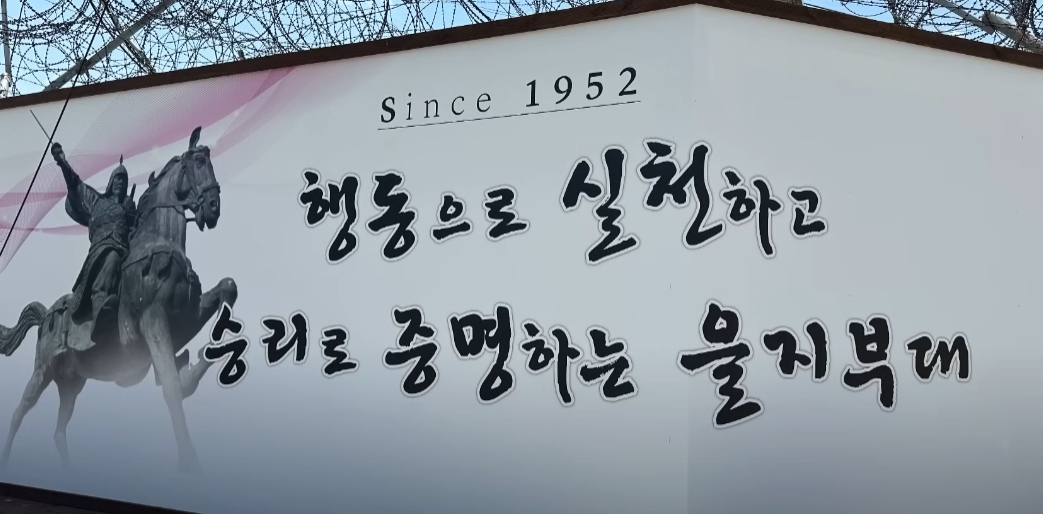 Since 1952
행동으로 실천하고
승리로 증명하는 을지부대